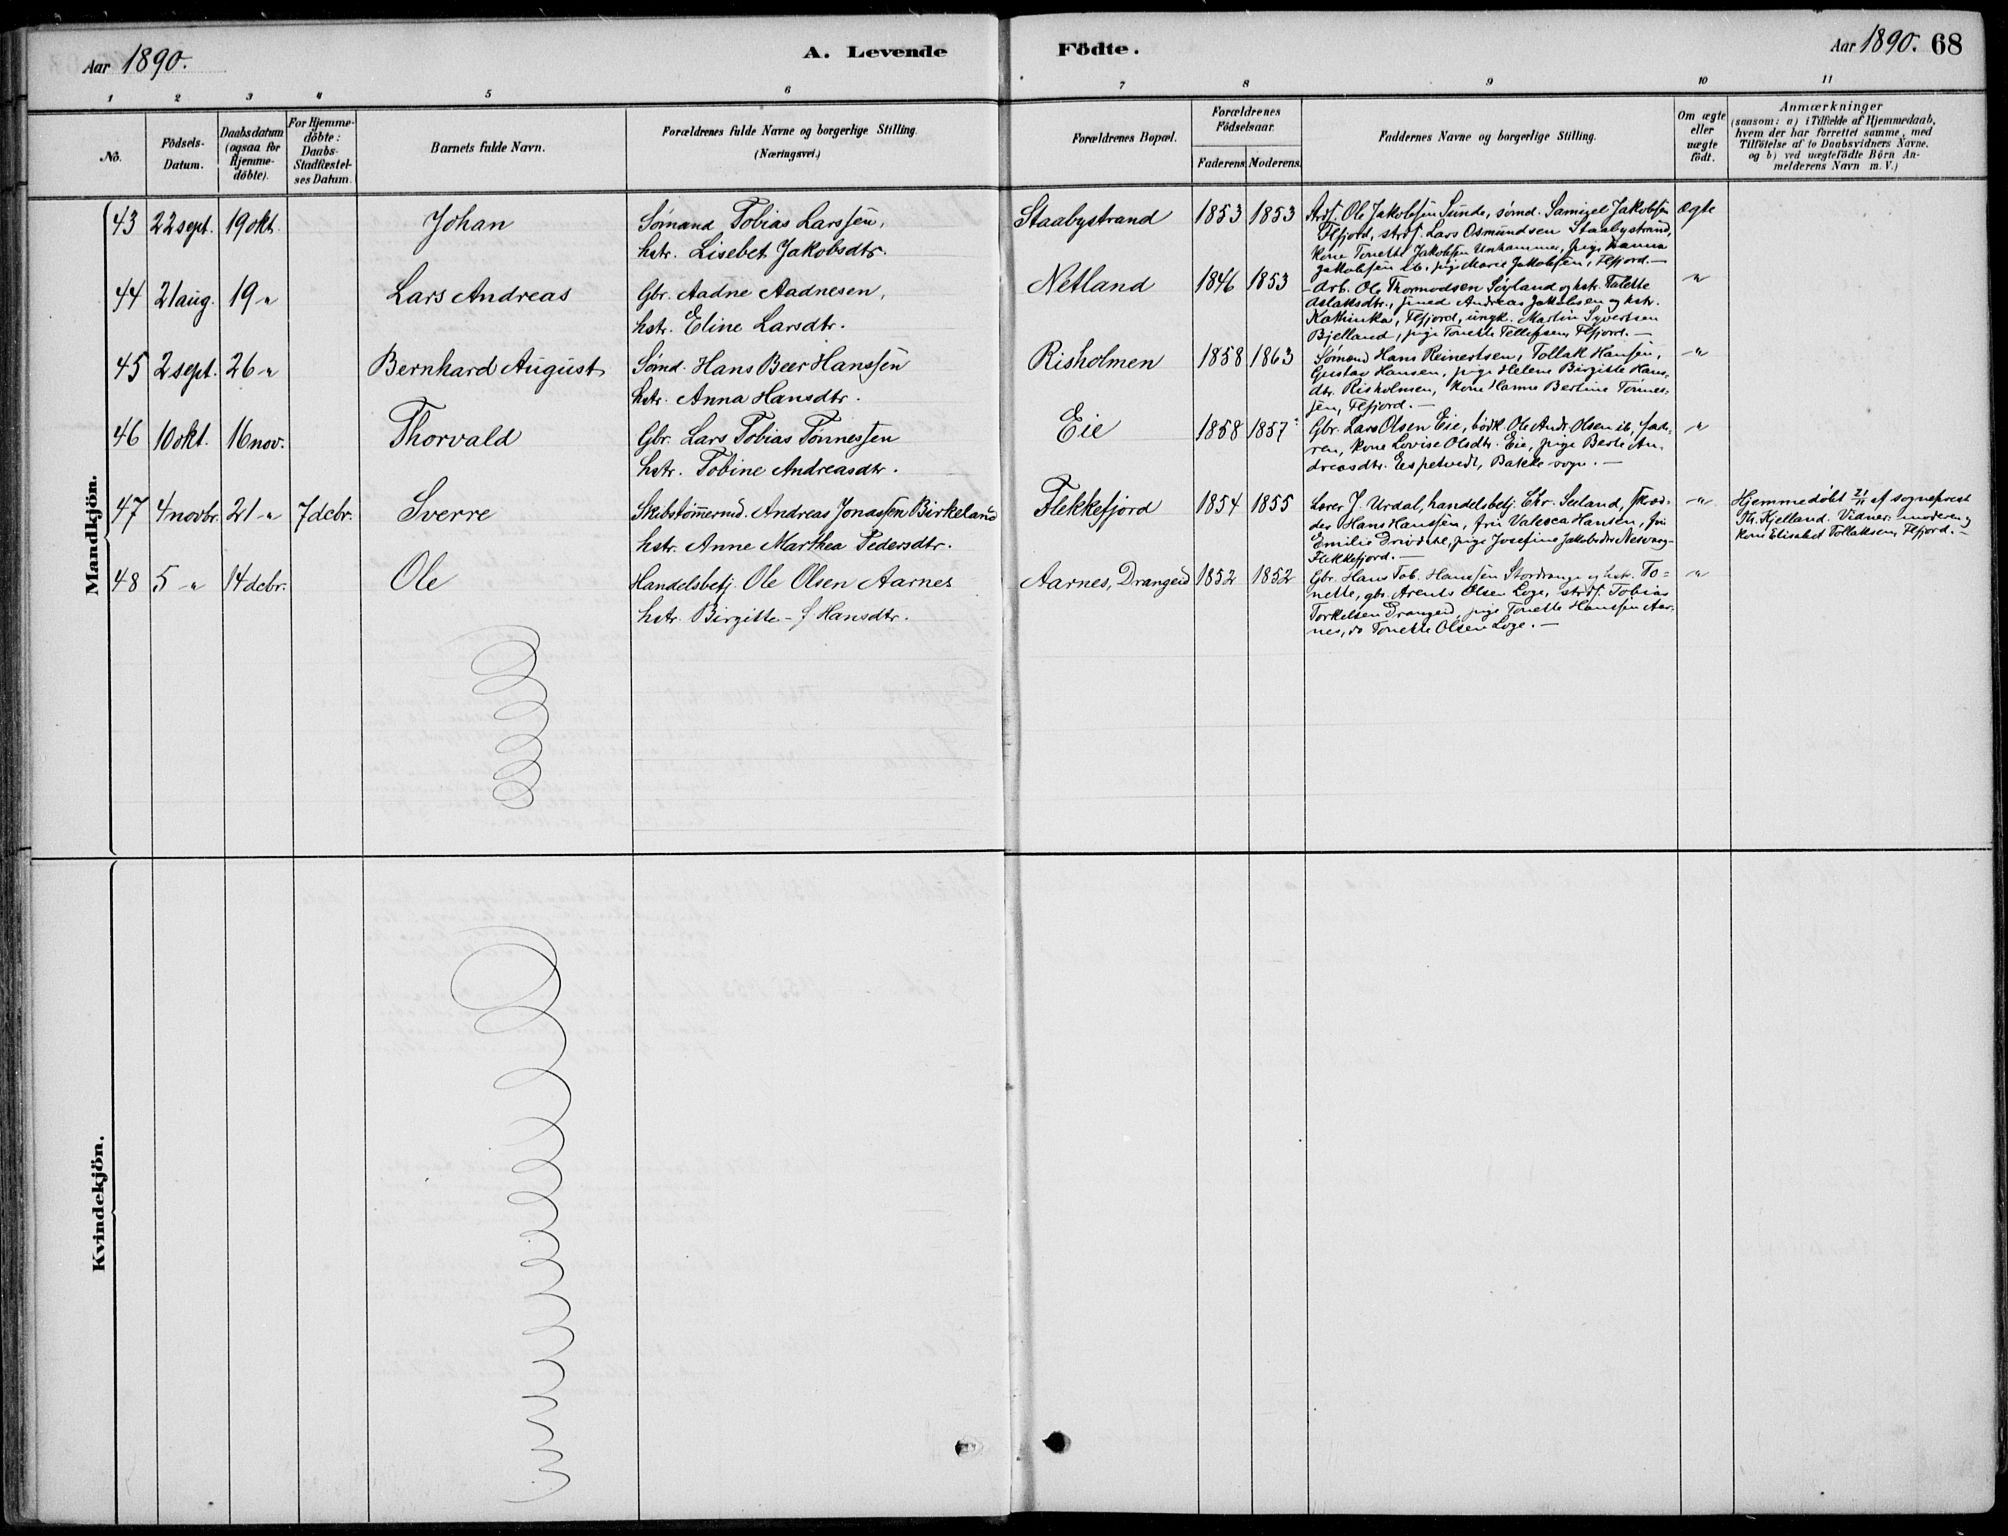 Aar 1890.
A. Levende Födte.
Aar 1890. 68
1 2 3 4 5 6 7 8 9 10 11
No.
Födsels-
Datum.
Daabsdatum
(ogsaa for
Hjemme-
döbte).
For Hjemme-
döbte:
Daabs-
Stadfæstel-
ses Datum.
Barnets fulde Navn.
Forældrenes fulde Navne og borgerlige Stilling.
(Næringsvei.)
Forældrenes Bopæl.
Forældrenes
Födselsaar.
Faderens. Moderens.
Faddernes Navne og borgerlige Stilling.
Om ægte
eller
uægte
födt.
Anmærkninger
(saasom: a) i Tilfælde af Hjemmedaab,
hvem der har forrettet samme, med
Tilföielse af to Daabsvidners Navne.
og b) ved uægtefödte Börn An-
melderens Navn m. V.)
Mandkjön.
43 22 sept. 19 okt. Johan
Sømand Tobias Larssen,
hstr. Lisebet Jakobsdtr.
Staabystrand 1853 1853
Strdf. Ole Jakobsen Sunde, sømd. Samuel Jakobsen
Flfjord, strdf. Lars Osmundsen Staabystrand,
kone Tonette Jakobsen Unhammer, pige Hanna
Jakobsen ib., pige Marie Jakobsen, Flfjord.—
Ægte
44 21 aug. 19 „ Lars Andreas
Gbr. Aadne Aadnesen,
hstr. Eline Larsdtr.
Netland 1846 1853
Arb. Ole Thormodsen Söyland og hstr. Talette
Aslaksdtr., smed Andreas Jakobsen og hstr.
Kathinka, Flfjord, ungk. Martin Syvertsen
Bjelland, pige Tonette Tellefsen, Flfjord.—
„
45 2 sept. 26 „ Bernhard August
Sømd. Hans Beer Hanssen
hstr. Anna Hansdtr.
Risholmen 1858 1863
Sømand Hans Reinertsen, Tollak Hansen,
Gustav Hansen, pige Helene Birgitte Hans-
dtr. Risholmen, kone Hanne Bertine Tönnes-
sen, Flfjord.—
„
46 10 okt. 16 nov. Thorvald
Gbr. Lars Tobias Tönnessen
hstr. Tobine Andreasdtr.
Eie 1858 1857
Gbr. Lars Olsen Eie, bödk. Ole Andr. Olsen ib., fade-
ren, kone Lovise Olsdtr. Eie, pige Berte An-
dreasdtr. Espetvedt, Bakke sogn.—
„
47 4 novbr. 21 „ 7 dcbr. Sverre
Skibstömmermd. Andreas Jonassen Birkeland
hstr. Anne Marthea Pedersdtr.
Flekkefjord 1854 1855
Lærer J. Urdal, handelsbetj. Chr. Seland, skræd-
der Hans Hanssen, fru Valesca Hansen, fru
Emilie Drivdahl, pige Josefine Jakobsdtr Nesvaag-
Flekkefjord.—
„
Hjemmedöbt 21/11 af sogneprest
Th. Kjelland. Vidner: moderen og
kone Elisabet Tollaksen, Flfjord.—
48 5 „ 14 dcbr. Ole
Handelsbetj. Ole Olsen Aarnes
hstr. Birgitte — f. Hansdtr.
Aarnes, Drangeid 1852 1852
Gbr. Hans Tob. Hanssen Stordrange og hstr. To=
nette, gbr. Arents Olsen Loge, strdf. Tobias
Torkelsen Drangeid, pige Tonette Hanssen Aar-
nes, do Tonette Olsen Loge.—
„
Kvindekjön.